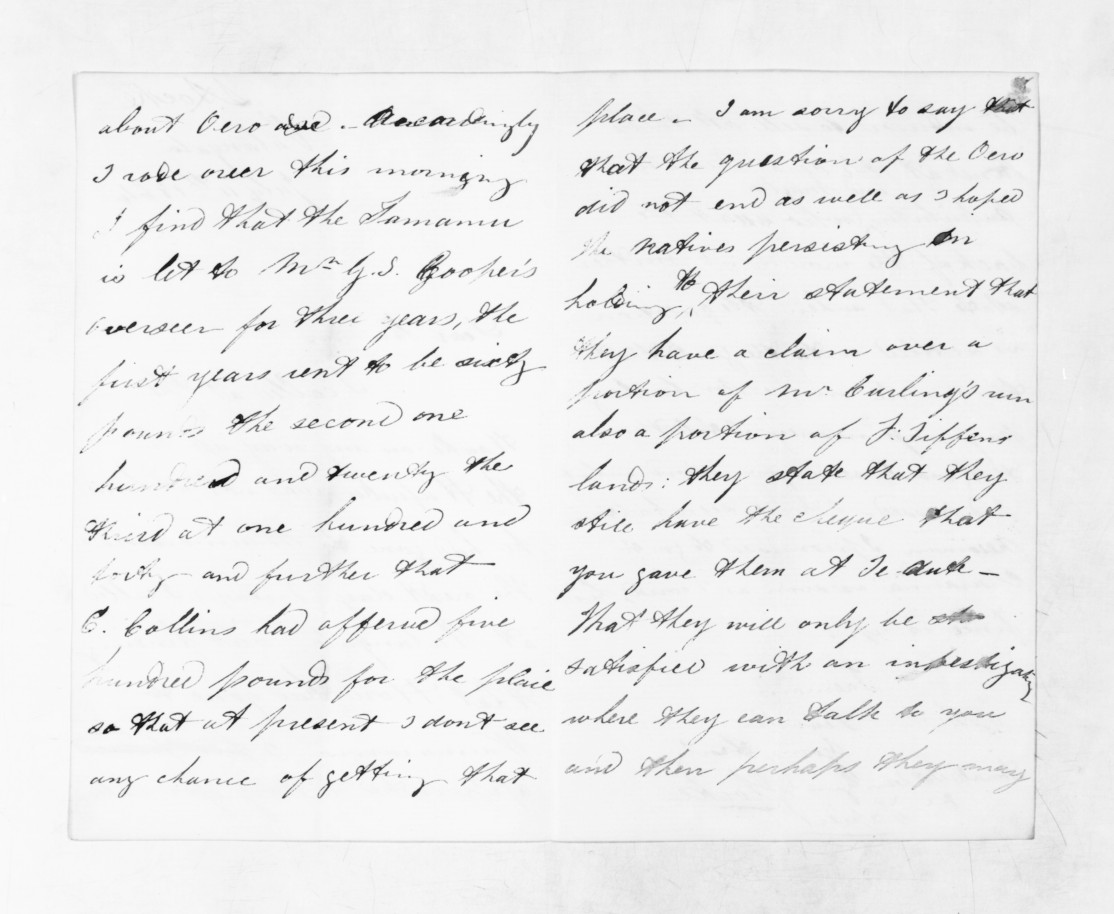 about Oero and - Accordingly
I rode over this morning
I find that the Tamanu
is let to Mr G. S. Cooper's
overseer for three years, the
first years rent to be sixty
pounds the second one
hundred and twenty the
third at one hundred and
forty and further that
C. Collins had offered five
hundred pounds for the place
so that at present I dont see
any chance of getting that
place - I am sorry to say that
that the question of the Oero
did not end as well as I hoped
the natives persisting in
holding to their statement that
they have a claim over a
portion of Mr Curling's run
also a portion of F. Tiffens
lands: they state that they
still have the cheque that
you gave them at Te Aute -
That they will only be
satisfied with an investigation
where they can talk to you
and then perhaps they may